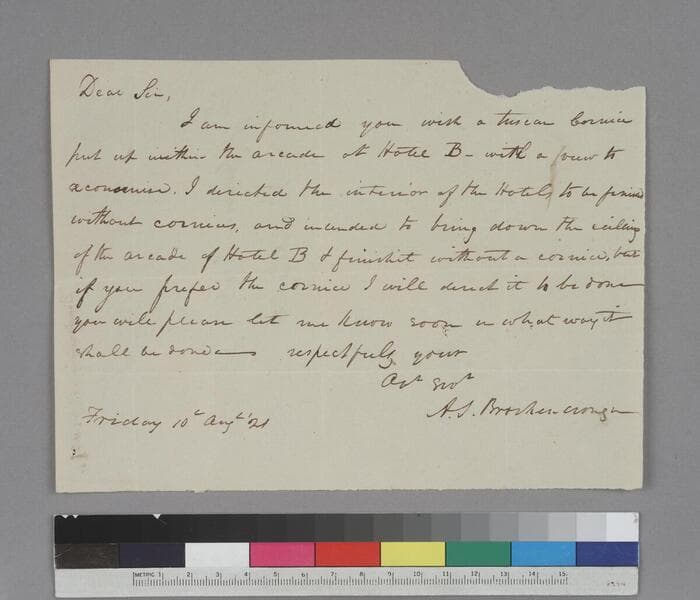 Dear Sir,
I am informed you wish a tuscan Cornice
put up within the arcade at Hotel B - with a view to
economise. I directed the interior of the Hotels to be finished
without cornices, and intended to bring down the ceiling
of the arcade of Hotel B & finish it without a cornice, but
if you prefer the cornice I will direct it to be done
you will please let me know soon in what way it
shall be done respectfully your
Obt Svt
A.S. Brockenbrough
Friday 10th Augt '21
METRIC 1 2 3 4 5 6 7 8 9 10 11 12 13 14 15